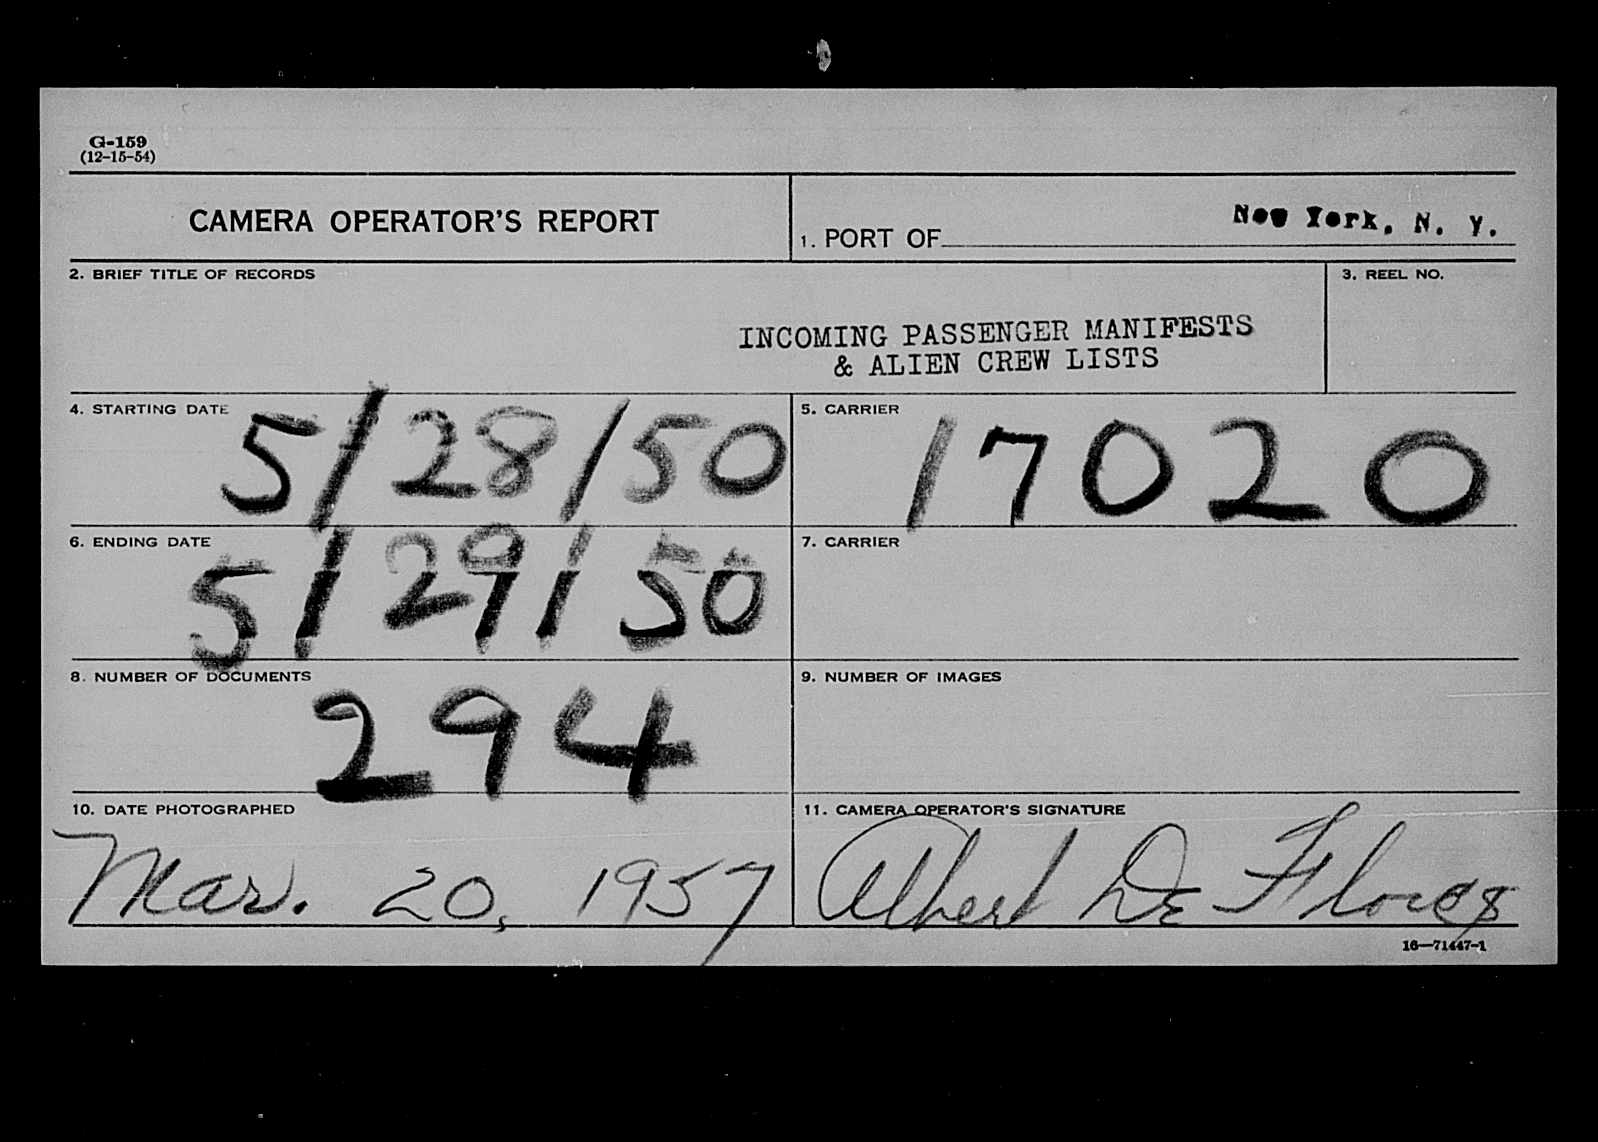 G-159
(12-15-54)
CAMERA OPERATOR'S REPORT
1. PORT OF New York, N. Y.
2. BRIEF TITLE OF RECORDS
INCOMING PASSENGER MANIFESTS
& ALIEN CREW LISTS
3. REEL NO.
4. STARTING DATE 5/28/50
5. CARRIER 17020
6. ENDING DATE 5/29/50
7. CARRIER
8. NUMBER OF DOCUMENTS 294
9. NUMBER OF IMAGES
10. DATE PHOTOGRAPHED
Mar. 20, 1957
11. CAMERA OPERATOR'S SIGNATURE
Albert De Flores
16—71447-1